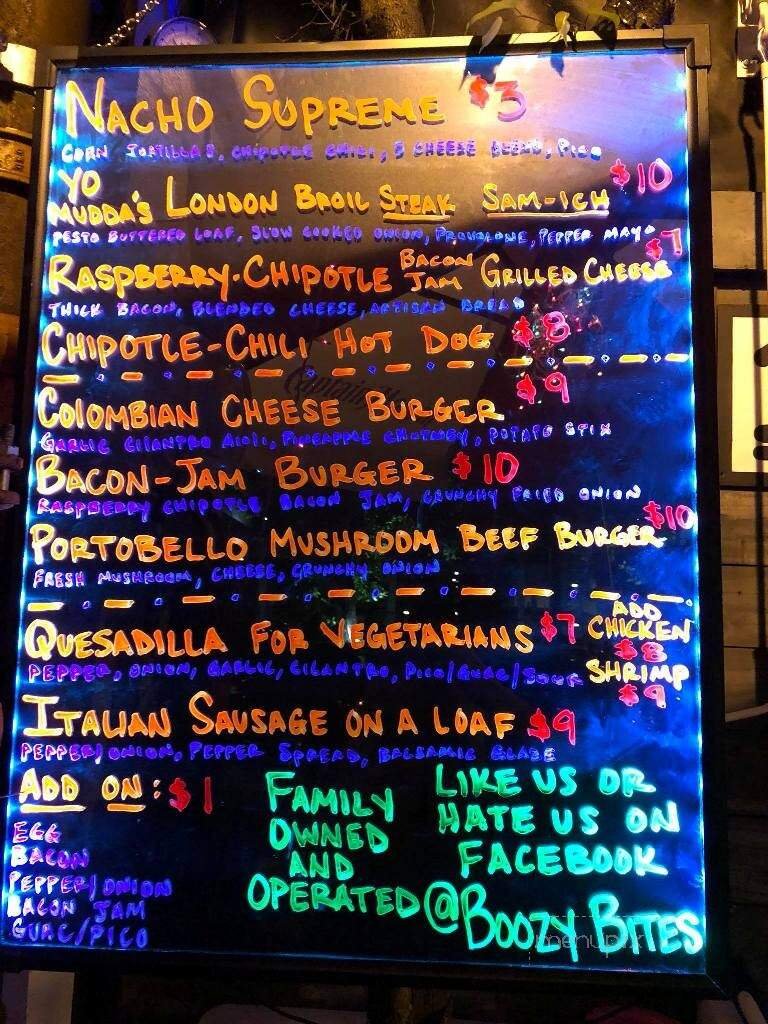 NACHO SUPREME $3
CORN TORTILLAS, CHIPOTLE CHILI, 3 CHEESE BLEND, PICO
YO $10
MUDDA'S LONDON BROIL STEAK SAM-ICH
PESTO BUTTERED LOAF, SLOW COOKED ONION, PROVOLONE, PEPPER MAYO
$7
RASPBERRY-CHIPOTLE BACON JAM GRILLED CHEESE
THICK BACON, BLENDED CHEESE, ARTISAN BREAD
CHIPOTLE-CHILI HOT DOG $8
$9
COLOMBIAN CHEESE BURGER
GARLIC CILANTRO AIOLI, PINEAPPLE CHUTNEY, POTATO STIX
BACON-JAM BURGER $10
RASPBERRY CHIPOTLE BACON JAM, CRUNCHY FRIED ONION
$10
PORTOBELLO MUSHROOM BEEF BURGER
FRESH MUSHROOM, CHEESE, CRUNCHY ONION
QUESADILLA FOR VEGETARIANS $7
ADD
CHICKEN
$8
SHRIMP
$9
PEPPER, ONION, GARLIC, CILANTRO, PICO/GUAC/SOUR
ITALIAN SAUSAGE ON A LOAF $9
PEPPER/ONION, PEPPER SPREAD, BALSAMIC GLAZE
ADD ON: $1
EGG
BACON
PEPPER/ONION
BACON JAM
GUAC/PICO
FAMILY
OWNED
AND
OPERATED
LIKE US OR
HATE US ON
FACEBOOK
@BOOZY BITES